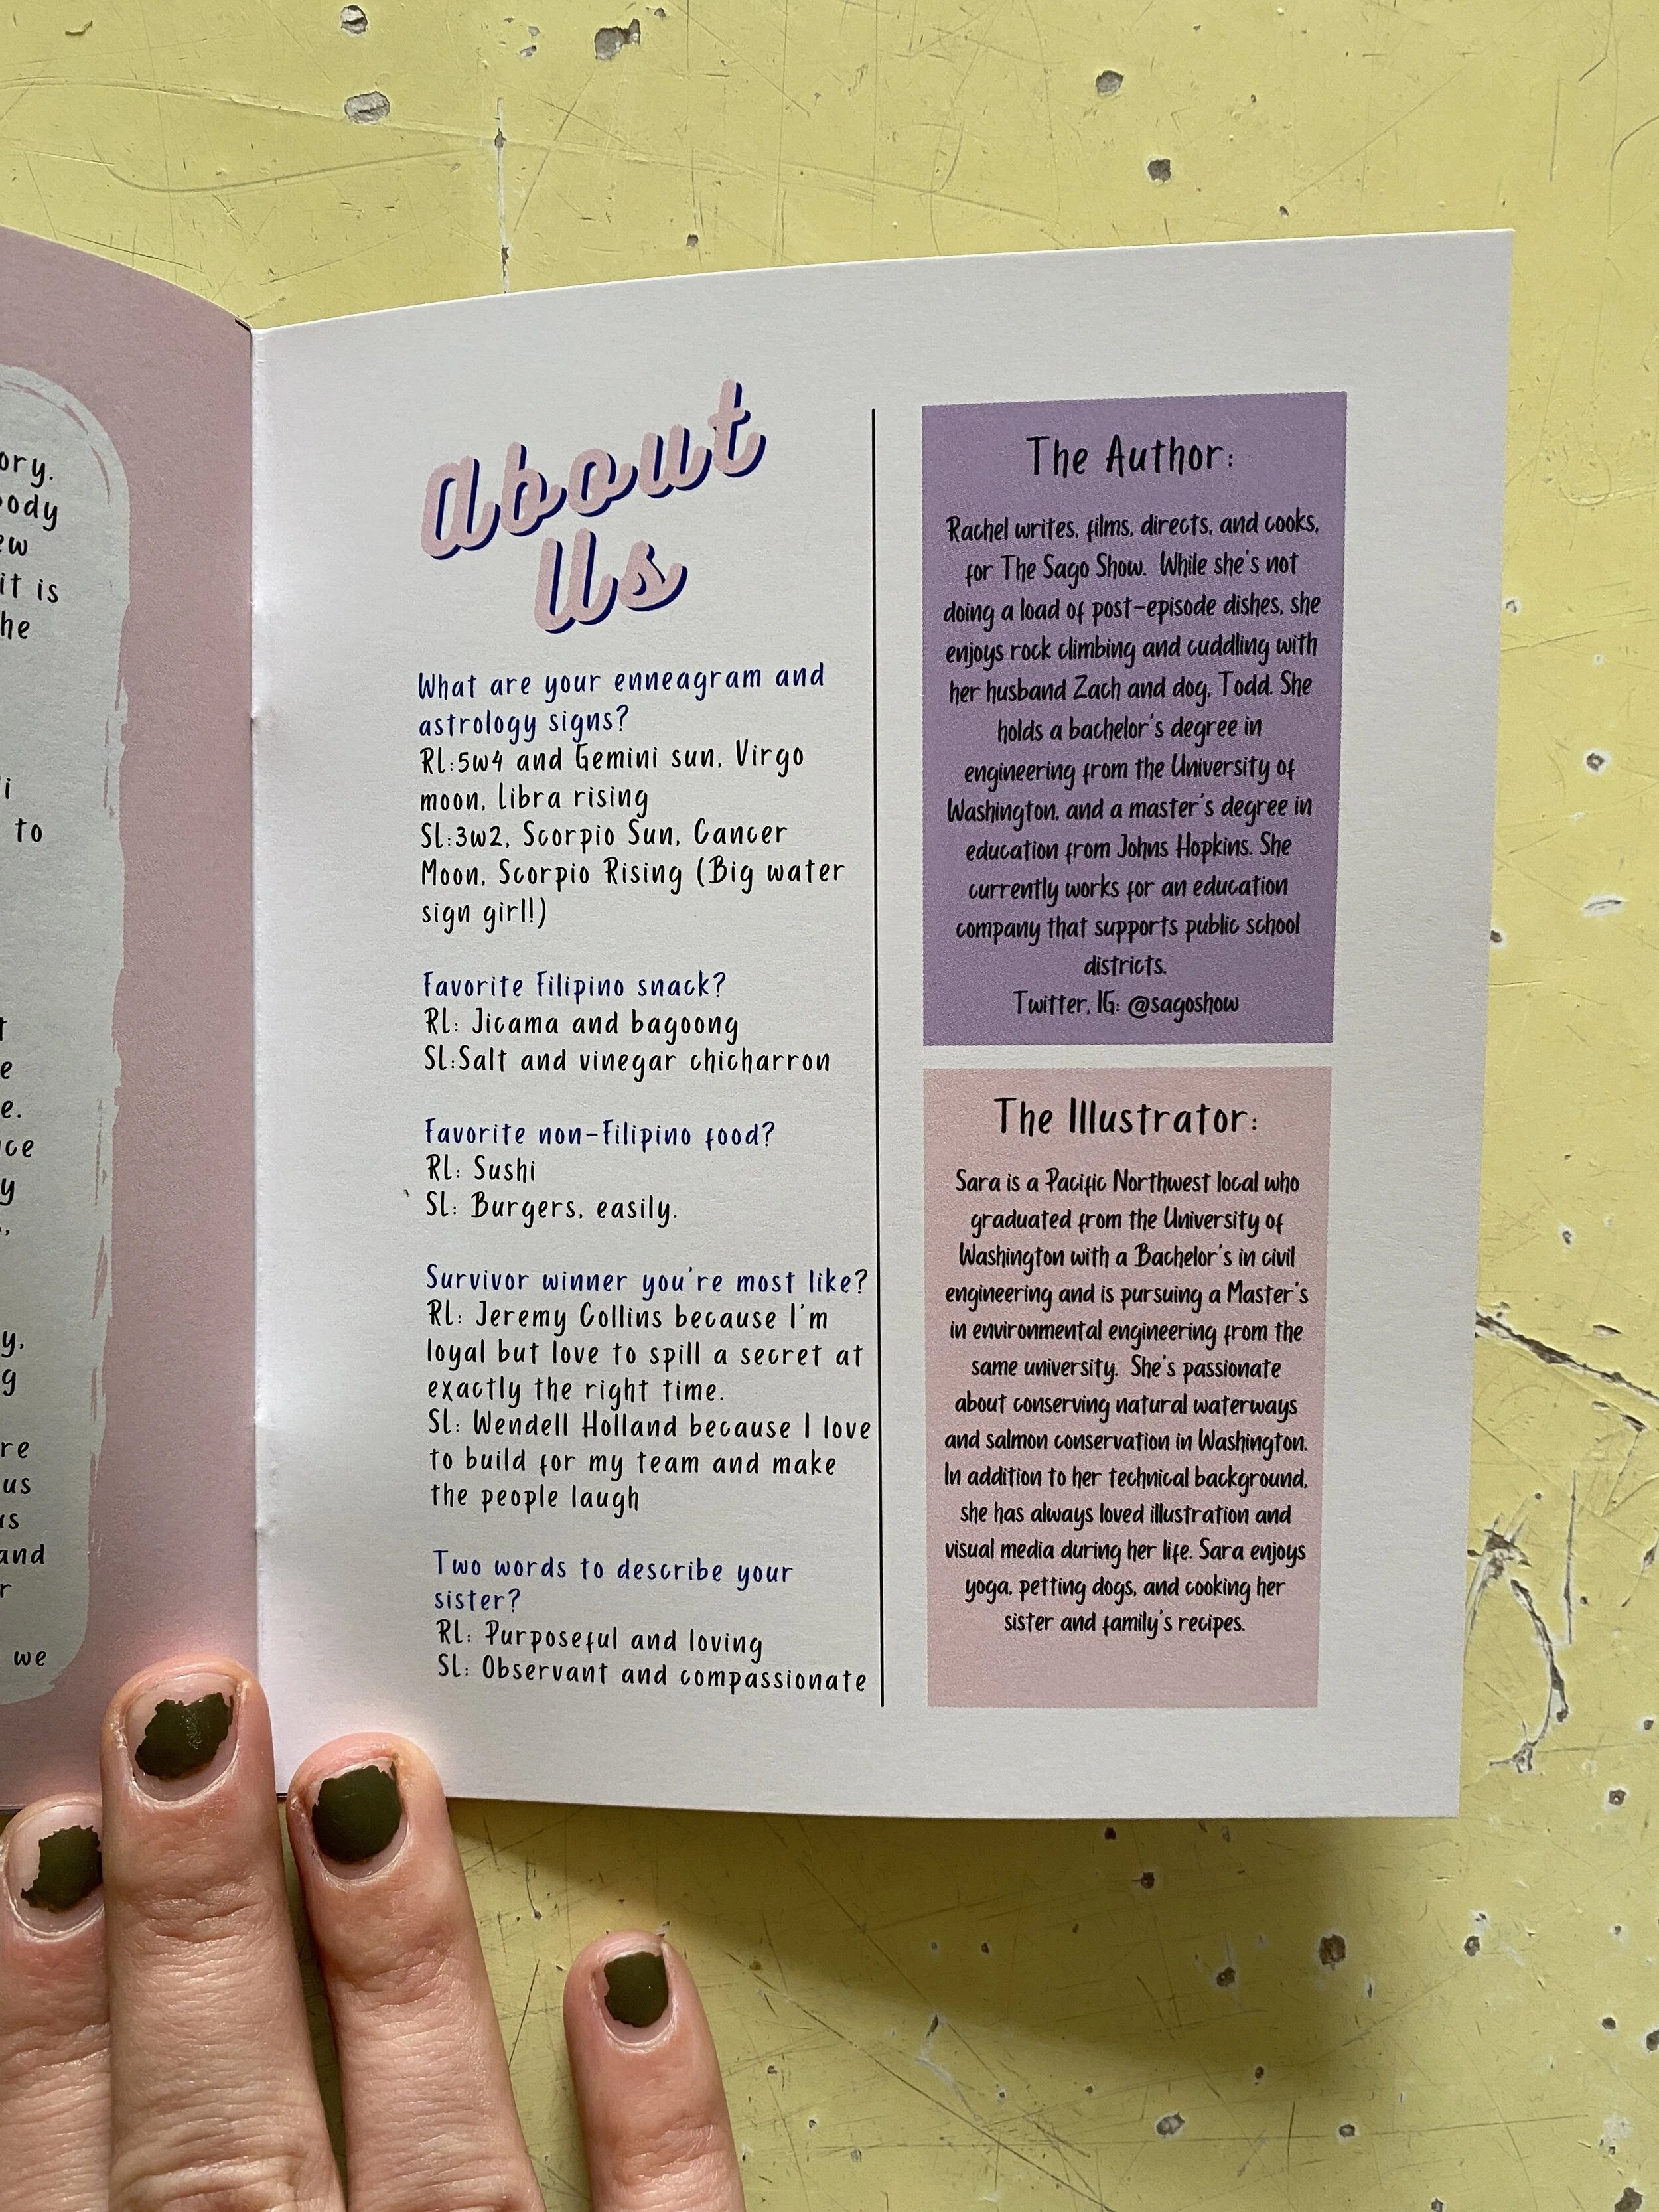 ory.
ody
ew
it is
he
i
to
t
e
e.
ce
y
y,
g
re
us
us
and
r
we
About
Us
What are your enneagram and
astrology signs?
RL:5w4 and Gemini sun, Virgo
moon, Libra rising
SL:3w2, Scorpio Sun, Cancer
Moon, Scorpio Rising (Big water
sign girl!)
Favorite Filipino snack?
RL: Jicama and bagoong
SL:Salt and vinegar chicharron
Favorite non-Filipino food?
RL: Sushi
SL: Burgers, easily.
Survivor winner you're most like?
RL: Jeremy Collins because I'm
loyal but love to spill a secret at
exactly the right time.
SL: Wendell Holland because I love
to build for my team and make
the people laugh
Two words to describe your
sister?
RL: Purposeful and loving
SL: Observant and compassionate
The Author:
Rachel writes, films, directs, and cooks,
for The Sago Show. While she's not
doing a load of post-episode dishes, she
enjoys rock climbing and cuddling with
her husband Zach and dog, Todd. She
holds a bachelor's degree in
engineering from the University of
Washington, and a master's degree in
education from Johns Hopkins. She
currently works for an education
company that supports public school
districts.
Twitter, IG: @sagoshow
The Illustrator:
Sara is a Pacific Northwest local who
graduated from the University of
Washington with a Bachelor's in civil
engineering and is pursuing a Master's
in environmental engineering from the
same university. She's passionate
about conserving natural waterways
and salmon conservation in Washington.
In addition to her technical background,
she has always loved illustration and
visual media during her life. Sara enjoys
yoga, petting dogs, and cooking her
sister and family's recipes.